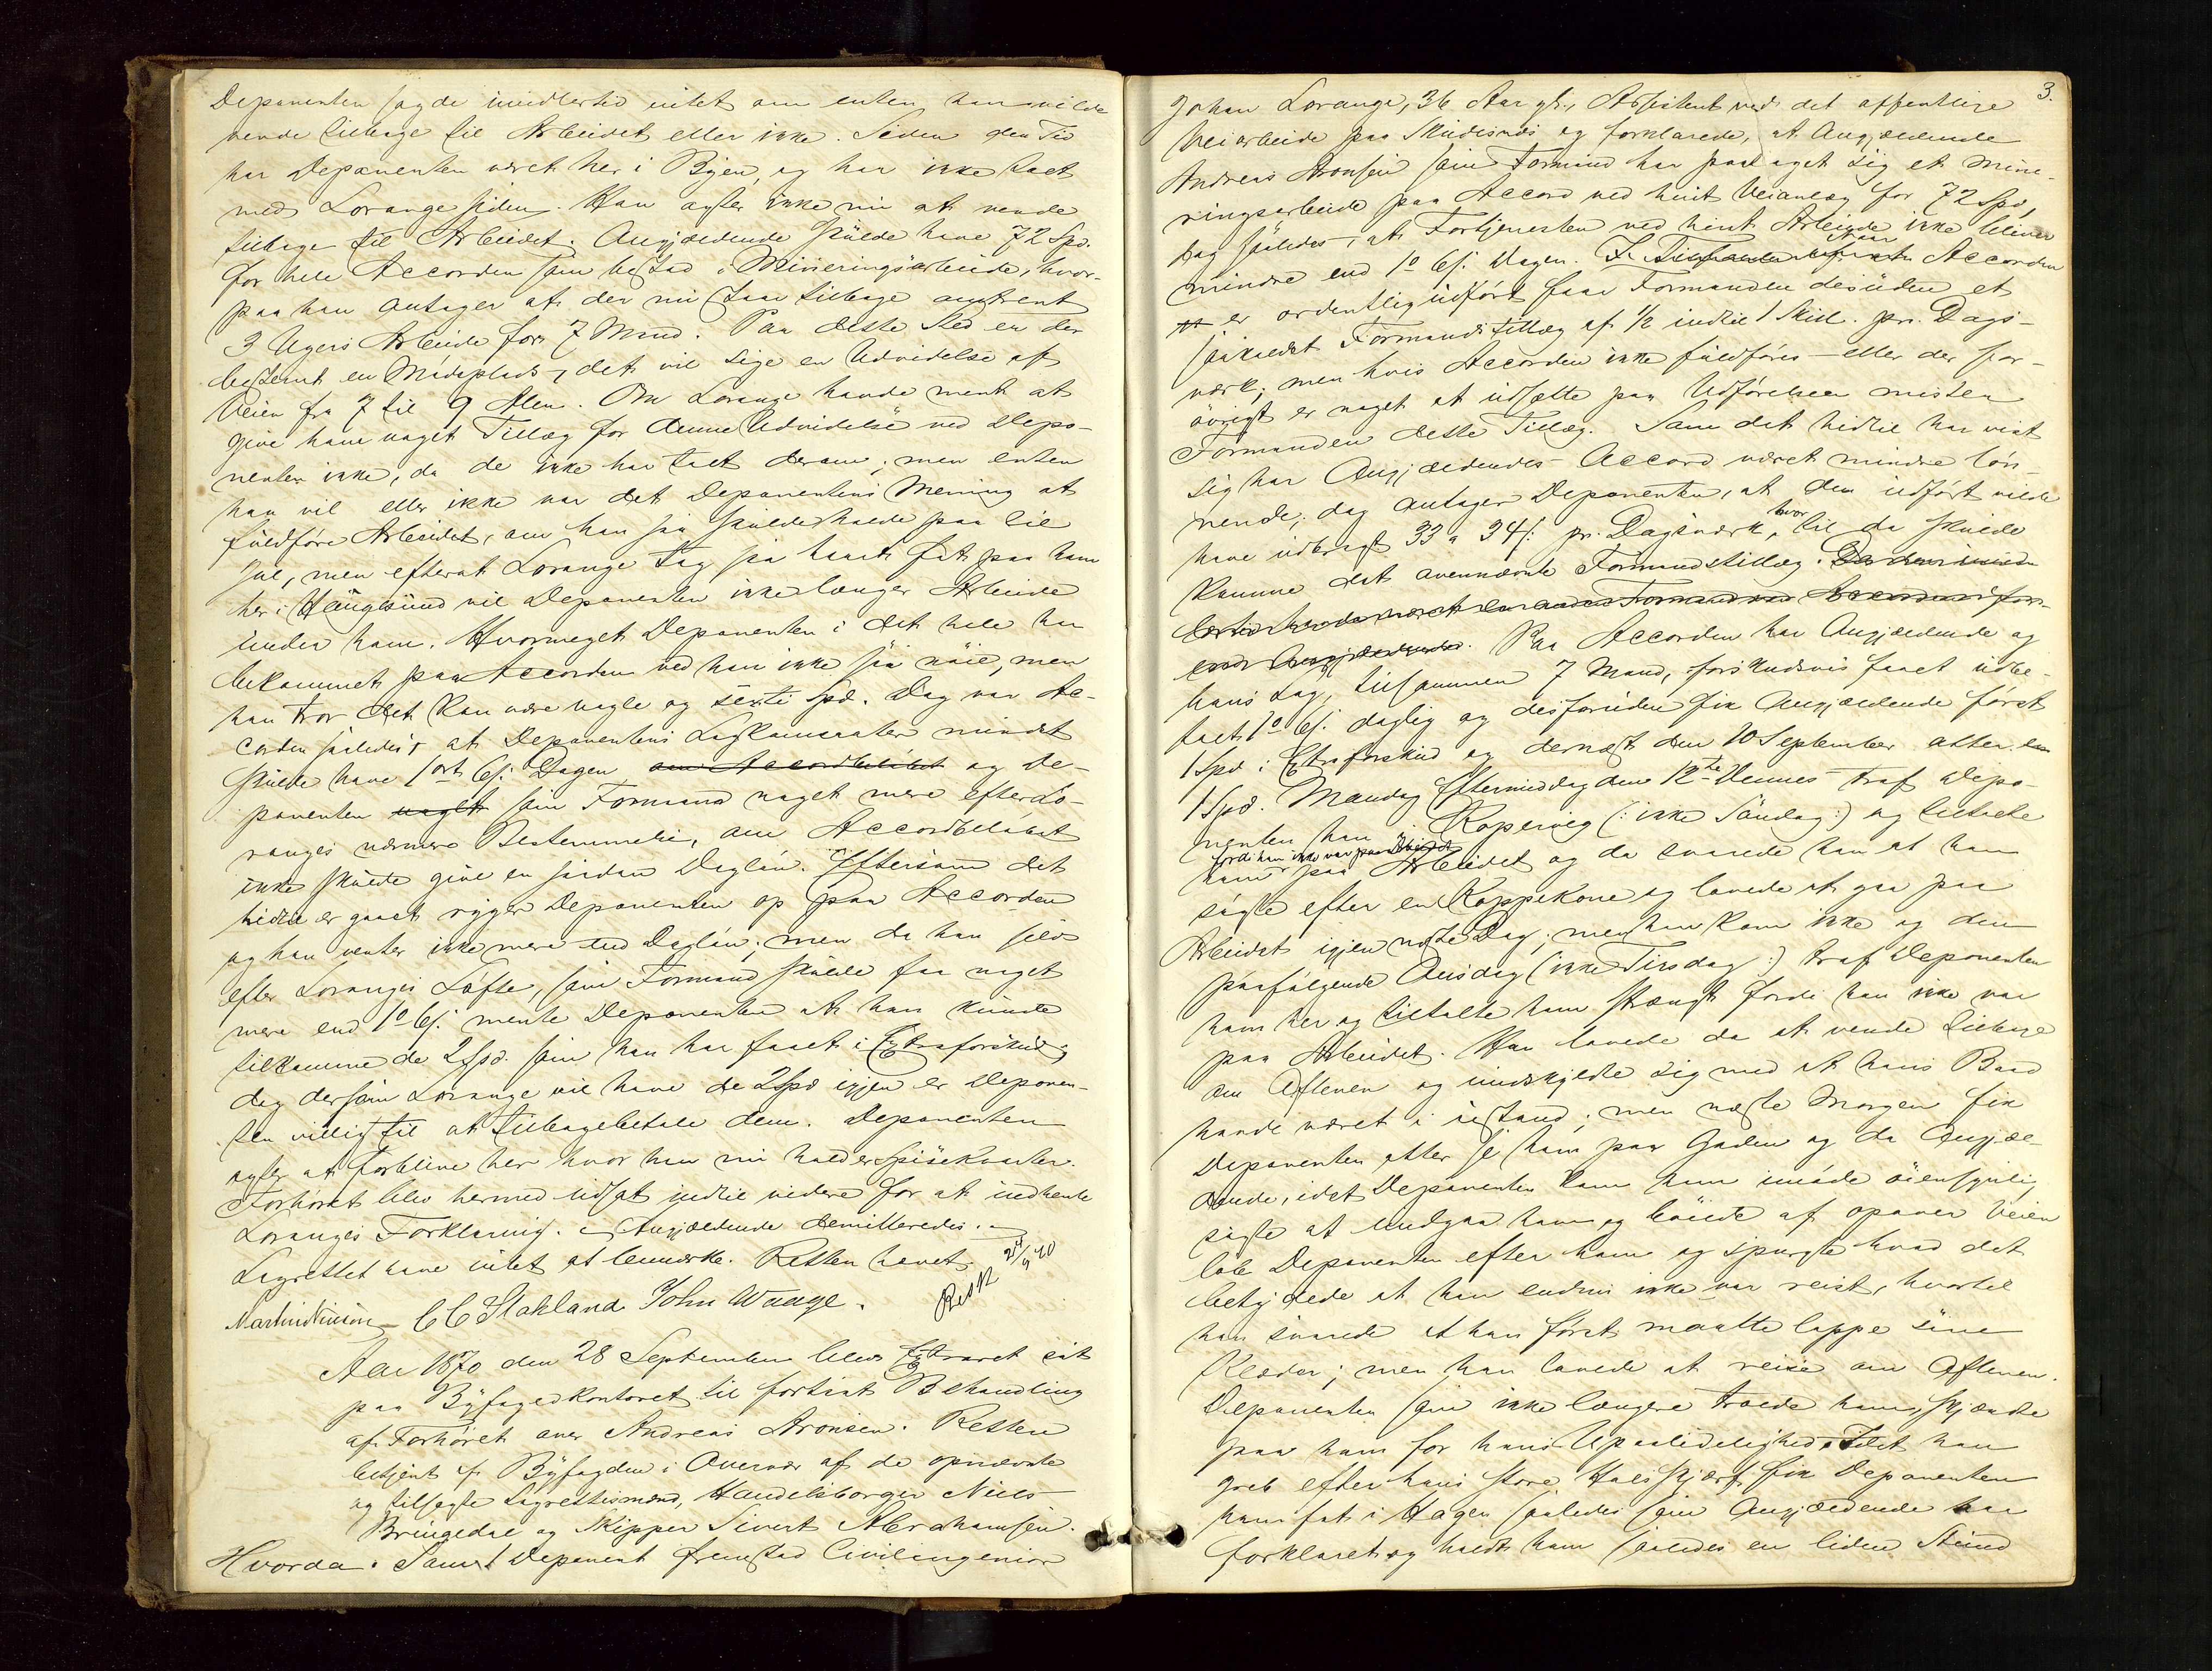 Deponenten sagde imidlertid intet om enten han vilde
vende tilbage til Arbeidet eller ikke. Siden den Tid
har Deponenten været her i Byen, og har ikke talt
med Lorange siden. Han agter ikke nu at vende
tilbage til Arbeidet. Angjældende skulde have 72 Spd.
for hele Accorden som bestod i Mineringsarbeide, hvor-
paa han antager at der nu staar tilbage omtrent
3 Ugers Arbeide for 7 Mand. Paa dette Sted er der
bestemt en Mødeplads, det vil sige en Udvidelse af
Veien fra 7 til 9 Alen. Om Lorange havde ment at
give ham noget Tillæg for denne Udvidelse ved Depo-
nenten ikke, da de ikke har talt derom; men enten
han vil eller ikke var det Deponentens Mening at
fuldføre Arbeidet, om han saa skulde holde paa til
Jul, men efterat Lorange tog saa haardt fat paa ham
her i Haugesund vil Deponenten ikke længer Arbeide
under ham. Hvormeget Deponenten i det hele har
bekommet paa Accorden ved han ikke saa nøie, men
han tror det kan være nogle og sexti Spd. Dog var Ac-
corden saaledes, at Deponentens Lagkamerater mindst
skulde have 1 ort 6 s. Dagen om Accordbeløbet og De-
ponenten noget som Formand noget mere efter Lo-
ranges nærmere Bestemmelse, om Accordbeløbet
ikke skulde give en saadan Dagløn. Eftersom det
hidtil er gaaet ryger Deponenten op paa Accorden
og han venter ikke mere end Dagløn; men da han selv
efter Loranges Løfte, som Formand skulde faa noget
mere end 1 o 6 s. mente Deponenten at han kunde
tilkomme de 2 Spd. som han har faaet i Extraforskud;
dog dersom Lorange vil have de 2 Spd igjen er Deponen-
ten villig til at tilbagebetale dem. Deponenten
agter at forblive her hvor han nu holder Spisekvarter.
Forhøret blev hermed udsat indtil videre for at indhente
Loranges Forklaring. Angjældende demitteredes.
Lagrettet havde intet at bemærke. Retten hævet.
24/9 70
C C Stokland John Waage.
Aar 1870 den 28 September blev Extraret sat
paa Byfogedkontoret til fortsat Behandling
af Forhøret over Andreas Aronsen. Retten
betjent af Byfogden i Overvær af de opnævnte
og tilsagte Lagrettesmænd, Handelsborger Niels
Bringedal og Skipper Sivert Abrahamsen.
Hvorda: Samt Deponent fremstod Civilingeniør
3.
Johan Lorange, 36 Aar gl., Assistent ved det offentlige
Veiarbeide paa Skudesnæs og forklarede, at Angjældende
Andreas Aronsen som Formand har paataget sig et Mine-
ringsarbeide paa Accord ved hint Veianlæg for 72 Spd,
dog saaledes, at Fortjenesten ved hint Arbeide ikke bliver
mindre end 1 o 6 s. Dagen. Naar Accorden
er ordentlig udført faar Formanden desuden et
saakaldet Formandstillæg af 1/2 indtil 1 Skill. pr. Dags-
værk; men hvis Accorden ikke fuldføres – eller der for-
øvrigt er noget at udsætte paa Udførelsen mister
Formanden dette Tillæg. Som det hidtil har vist
sig har Angjældendes Accord været mindre løn-
nende; dog antager Deponenten, at den udført vilde
have udbragt 33 a 34 s. pr. Dagsværk, hvortil da skulde
komme det ovennævnte Formandstillæg.
Paa Accorden har Angjældende og
hans Lag, tilsammen 7 Mand, forskudsvis faaet udbe-
talt 1 o 6 s. daglig og desforuden fik Angjældende først
1 Spd i Extraforskud og dernæst den 10 September atter en
1 Spd. Mandag Eftermiddag den 12te Dennes traf Depo-
nenten ham i Kopervig (: ikke Søndag :) og tiltalte
ham fordi han ikke var paa Arbeidet og da svarede han at han
søgte efter en Koppekone og lovede at gaa paa
Arbeidet igjen næste Dag; men han kom ikke og den
paafølgende Onsdag (ikke Tirsdag :) traf Deponenten
ham her og tiltalte ham strængt fordi han ikke var
paa Arbeidet. Han lovede da at vende tilbage
om Aftenen og undskyldte sig med at hans Baad
havde været i ustand; men næste Morgen fik
Deponenten atter se ham paa Gaden og da Angjæl-
dende, idet Deponenten kom ham imøde øiensynlig
søgte at undgaa ham og bøiede af opover Veien
løb Deponenten efter ham og spurgte hvad det
betydede at han endnu ikke var reist, hvortil
han svarede at han først maatte lappe sine
Klæder; men han lovede at reise om Aftenen.
Deponenten som ikke længere troede ham, skjændte
paa ham for hans Upaalidelighed. Idet han
greb efter hans store Halsskjærf, fik Deponenten
ham fat i Hagen saaledes som Angjældende har
forklaret og holdt ham saaledes en liden Stund